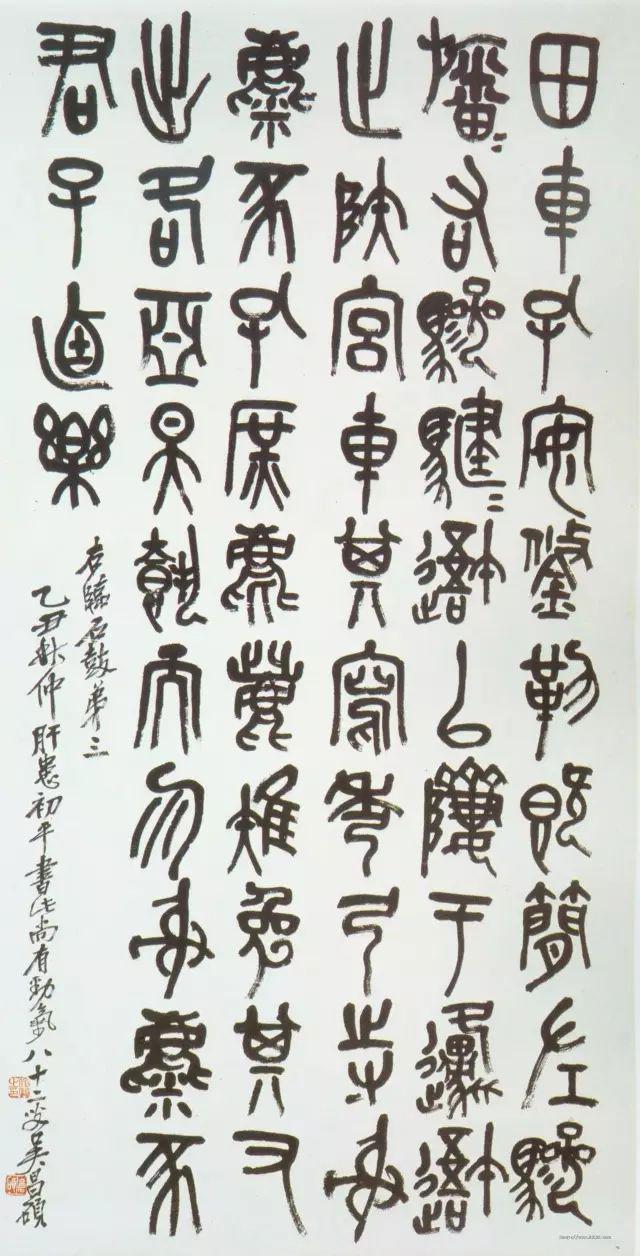 田車孔安鋚勒既簡左驂
旛〻右驂騝〻䢒以隮于邍䢒
止陝宮車其寫秀弓寺射
麋豕孔庶麀鹿雉兔其又
出各亞昊執而勿射麋豕
君子逌樂
右臨石鼓弟三
乙丑秋仲肝恙初平書此尚有勁氣八十二叟吳昌碩